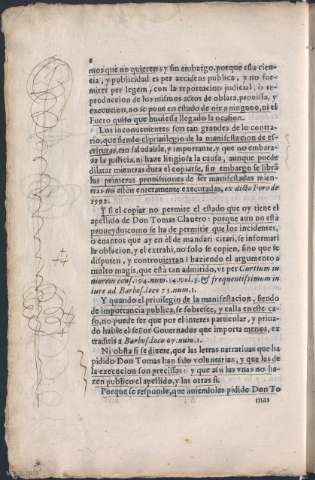 8
mos que no quieren: y sin embargo, porque esta cien-
cia, y publicidad es per accidens publica, y no for-
miter per legem, con la reportacion judicial, ò re-
producion de los mismos actos de oblara, prouisa, y
execucion, no se pone en estado de oir a ninguno, ni el
Fuero quiso que huuiesse llegado la ocasion.
Los inconuenientes son tan grandes de lo contra-
rio, que siendo el priuilegio de la manifestacion de es-
crituras, tan saludable, y importante, y que no embara-
za la justicia, ni haze lingioſa la causa, aunque puede
dilatar mientras dura el copiarse, sin embargo se librò
las primeras prouisiones de ser manifestadas mien-
tras no estèn enteramente executadas, ex dicto Foro de
1592.
Y si el copiar no permite el estado que oy tiene el
apellido de Don Tomas Clauero: porque aun no està
proueydo; como se ha de permitir que los incidentes,
ò enantos que ay en èl de mandar citar, se informar
la oblacion, y el extrahi, no solo se copien, sino que se
disputen, y controuiertan? haziendo el argumento à
multo magis, que està tan admitido, vt per Curtium iu
niorem cons. 194. num. 14. vol. 3. & frequentissimum in
iure ad Barbos. loco 73. num. 1.
Y quando el priuilegio de la manifestacion, siendo
de importancia publica, se sobresee, y calla en este ca-
so, no puede ser que por el interes particular, y priua-
do hable el señor Gouernador que importa menos, ex
traditis à Barbos. loco 67. num. 1.
Ni obsta si se dixere, que las letras narratiuas que ha
pidido Don Tomas han sido voluntarias, y que las de
la execucion son precissas: y que assi las vnas no ha-
zen publico el apellido, y las otras si.
Porque se responde, que auiendolas pidido Don To
mas